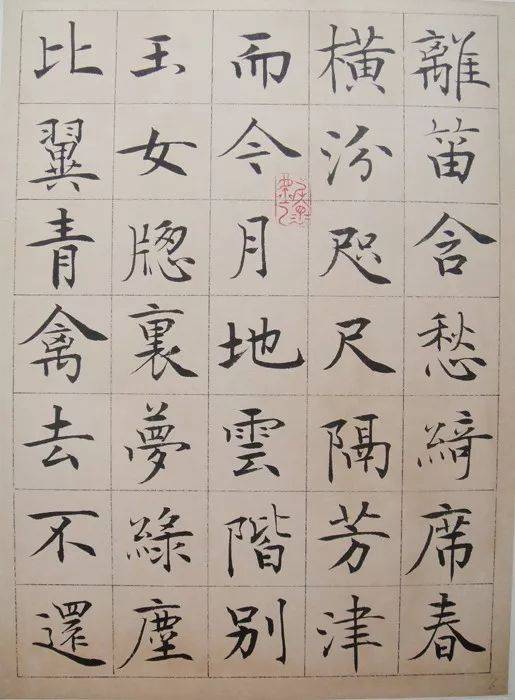 離笛含愁綺席春
橫汾咫尺隔芳津
而今月地雲階別
玉女牎裏夢綠塵
比翼青禽去不還